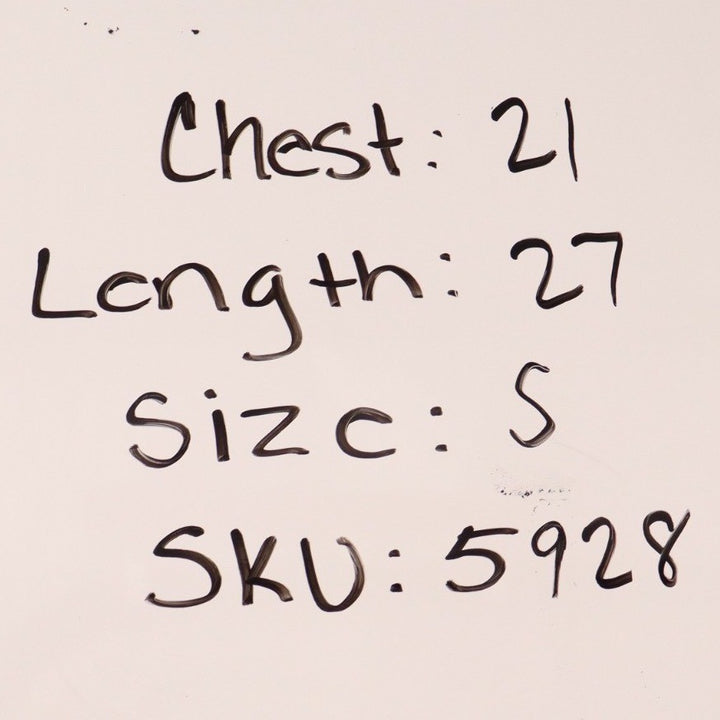 Chest: 21
Length: 27
Size: S
SKU: 5928